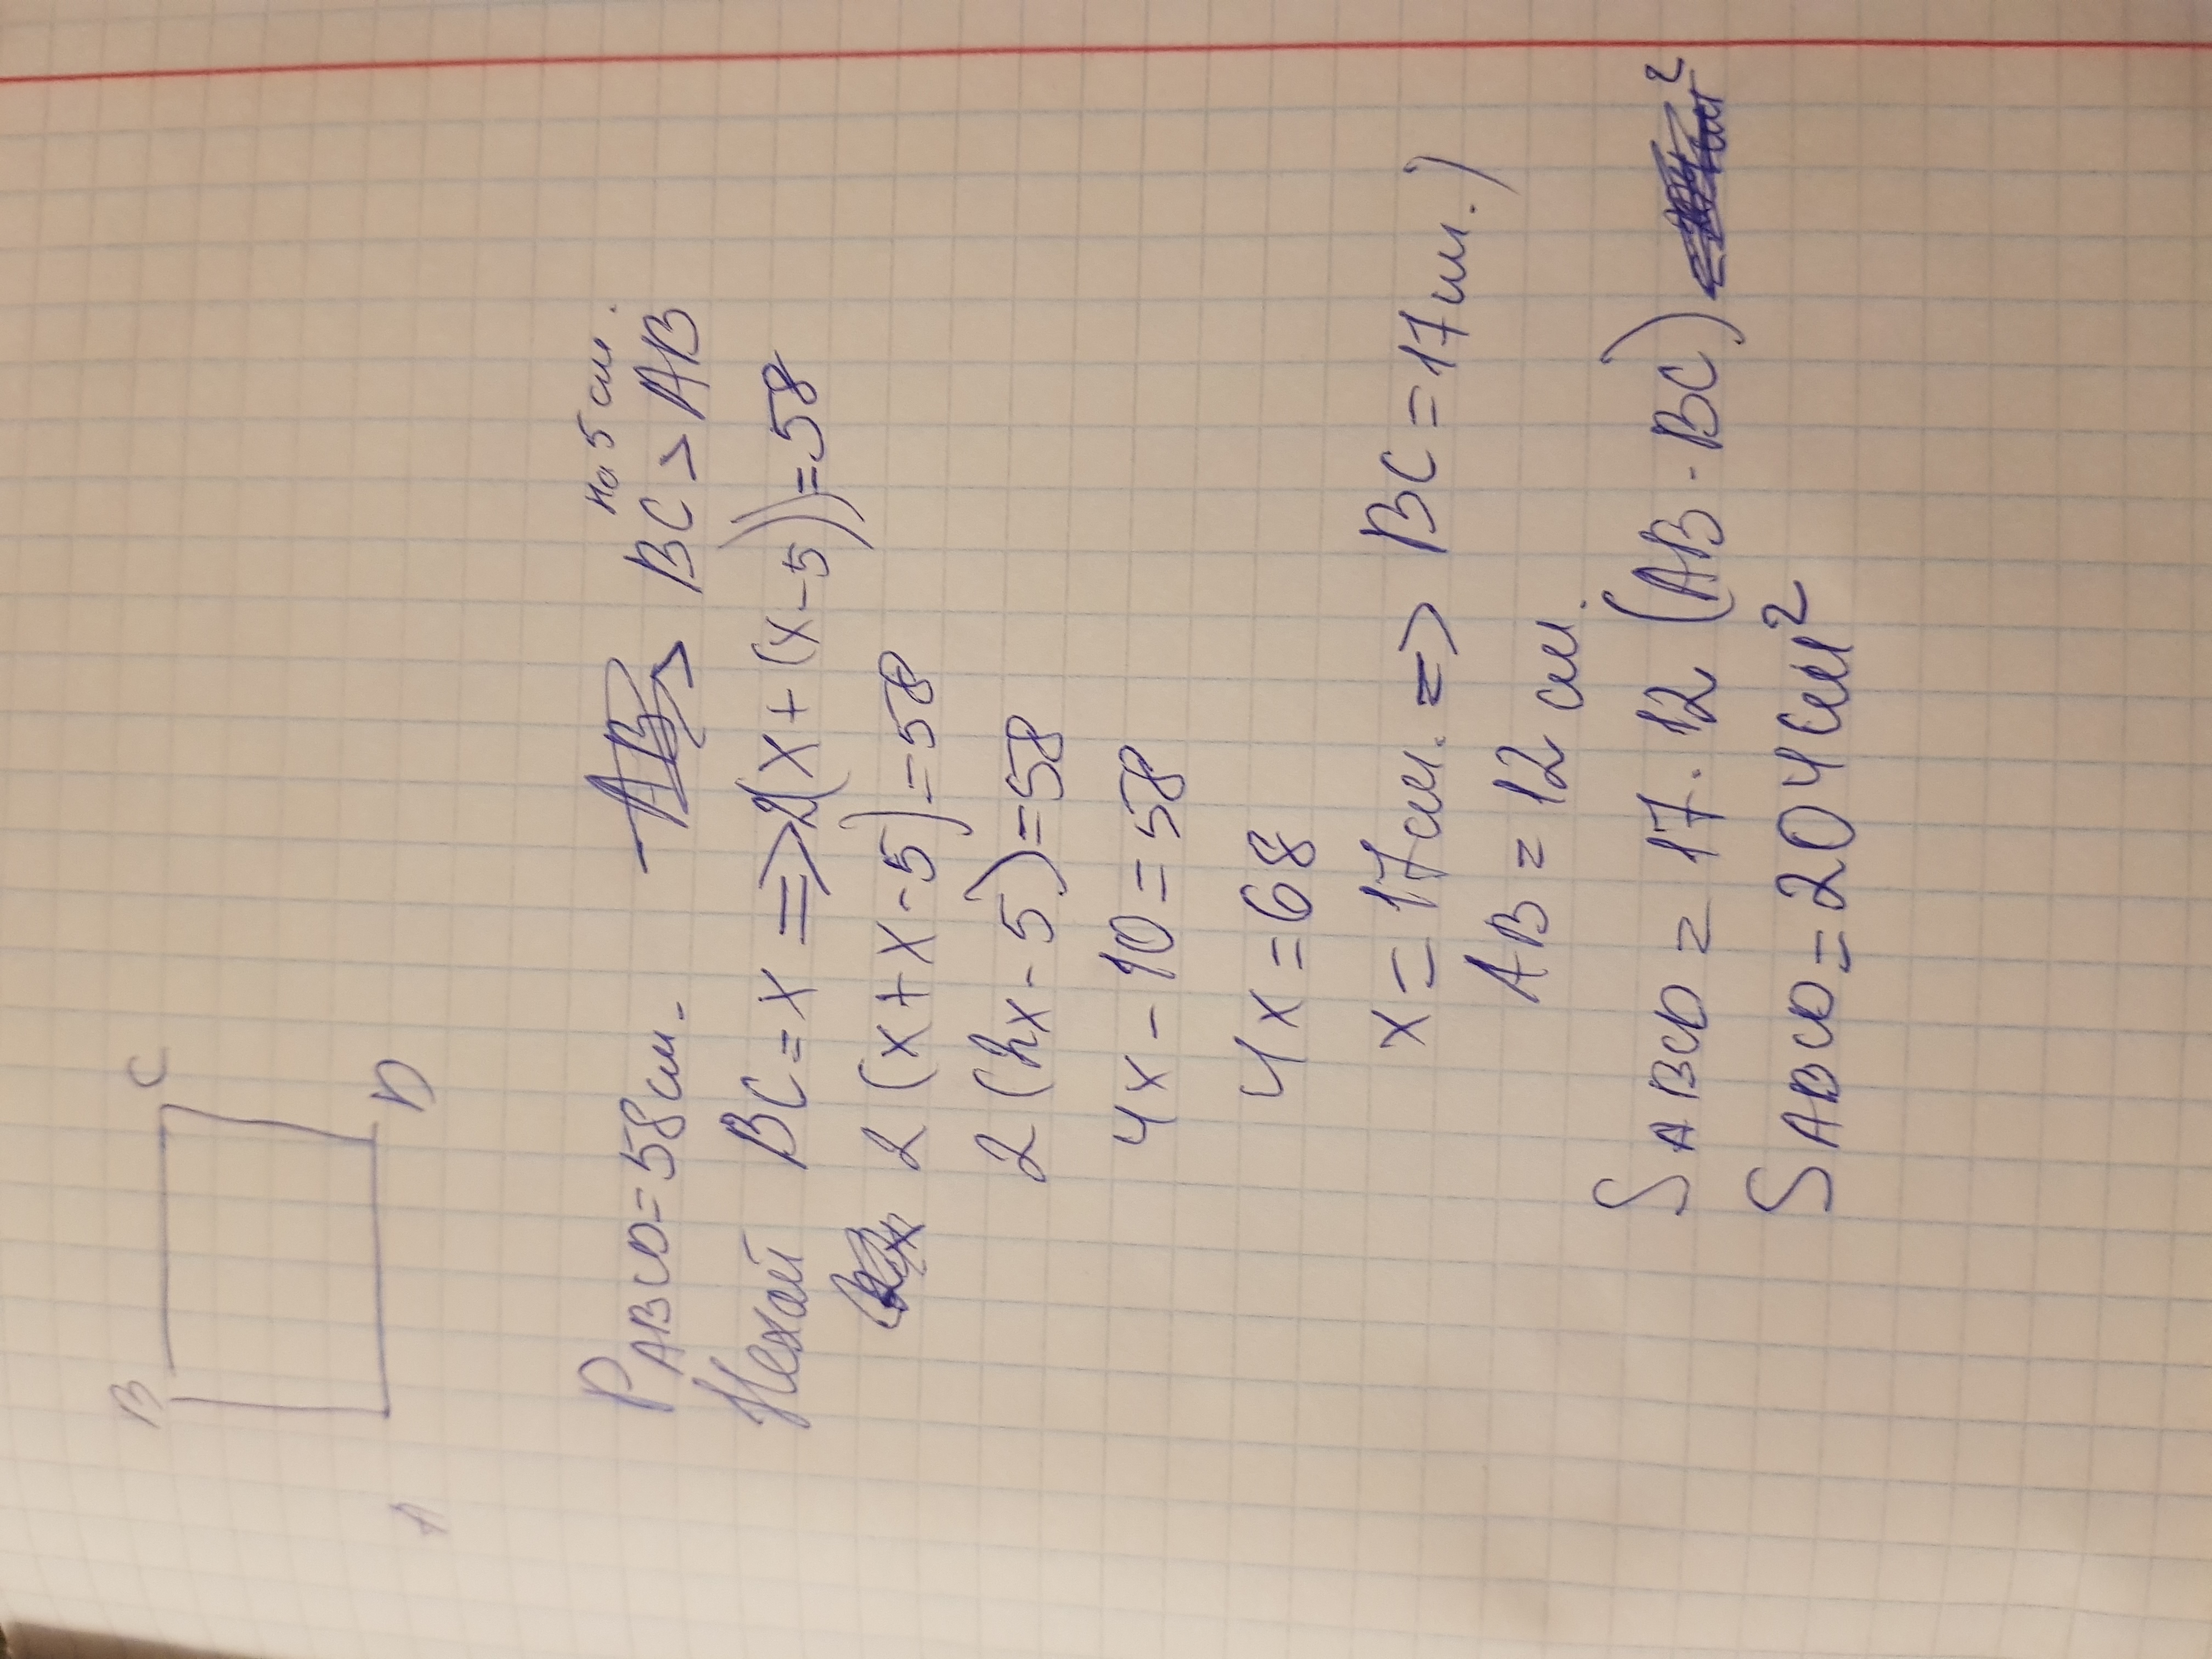 B C
A D
P ABCD = 58 см. BC > AB на 5 см.
Нехай BC = x => 2(x + (x - 5)) = 58
2 (x + x - 5) = 58
2 (2x - 5) = 58
4x - 10 = 58
4x = 68
x = 17 см. => BC = 17 см.)
AB = 12 см.
S ABCD = 17 · 12 (AB · BC)
S ABCD = 204 см²